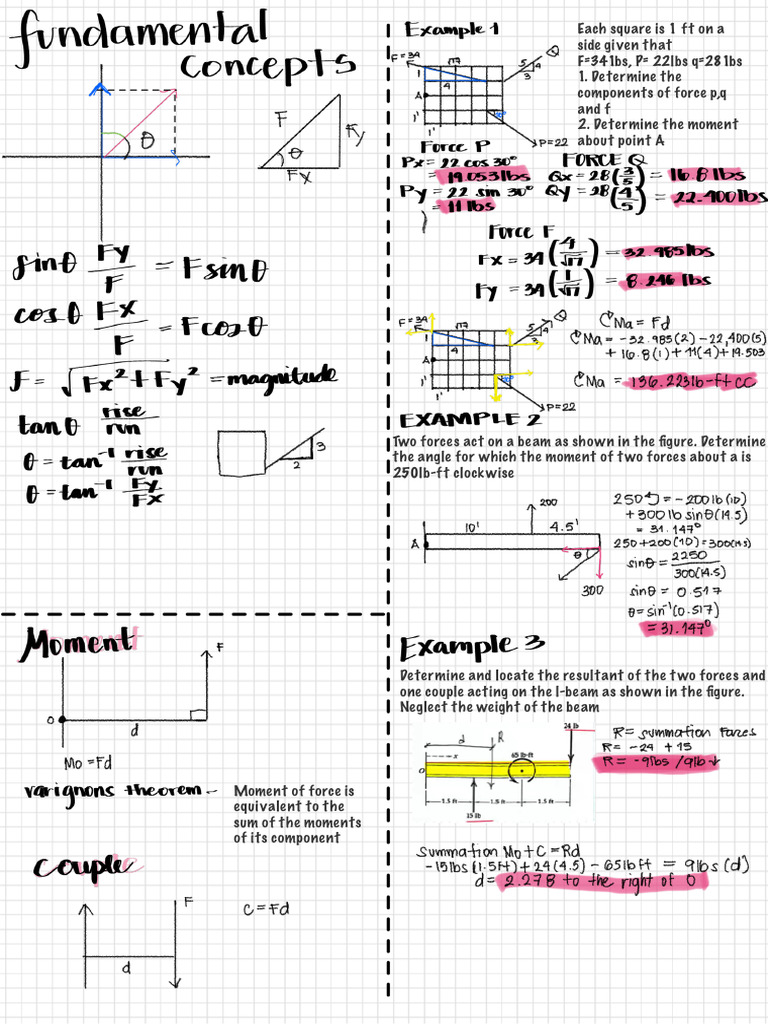 fundamental
concepts
θ
F
Fy
θ
Fx
sinθ Fy/F = Fsinθ
cosθ Fx/F = Fcosθ
F = √Fx² + Fy² = magnitude
tanθ rise/run
θ = tan⁻¹ rise/run
θ = tan⁻¹ Fy/Fx
3
2
Moment
F
O
d
Mo = Fd
varignons theorem -
Moment of force is
equivalent to the
sum of the moments
of its component
couple
F
C = Fd
d
Example 1
Each square is 1 ft on a
side given that
F=34lbs, P= 22lbs q=28lbs
1. Determine the
components of force p,q
and f
2. Determine the moment
about point A
F=34
√17
5
4
3
Q
4
A
1'
1'
P=22
Force P
Px = 22 cos 30°
= 19.053lbs
Py = 22 sin 30°
= 11 lbs
FORCE Q
Qx = 28(3/5) = 16.8 lbs
Qy = 28(4/5) = 22.400lbs
Force F
Fx = 34(4/√17) = 32.985lbs
Fy = 34(1/√17) = 8.246 lbs
F=34
√17
5
4
3
Q
4
A
1'
1'
P=22
Ma = Fd
Ma = -32.985(2) -22,400(5)
+ 16.8(1) + 11(4) + 19.503
Ma = 136.223lb-ft cc
EXAMPLE 2
Two forces act on a beam as shown in the figure. Determine
the angle for which the moment of two forces about a is
250lb-ft clockwise
200
10'
4.5'
A
θ
300
250 = -200lb(10)
+300lb sinθ(14.5)
= 31.147°
250+200(10)=300(14.5)
sinθ = 2250/300(14.5)
sinθ = 0.517
θ=sin⁻¹(0.517)
= 31.147°
Example 3
Determine and locate the resultant of the two forces and
one couple acting on the I-beam as shown in the figure.
Neglect the weight of the beam
24 lb
d
R
x
65 lb-ft
O
1.5 ft
1.5 ft
1.5 ft
15 lb
R= summation Forces
R= -24 + 15
R= -9lbs /9lb↓
Summation Mo+C = Rd
-15lbs(1.5ft) + 24(4.5) -65lbft = 9lbs(d)
d= 2.278 to the right of O